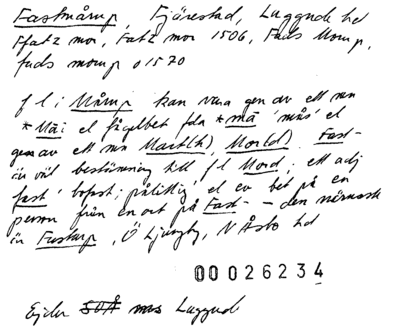 Fastmårup, Fjärestad, Luggude hd
Ffatz mor, Fatz mor 1506, Fads Morup,
fads morup o 1570
f l i Mårup kan vara gen av ett mn
*Må i el fågelbet fda *må 'mås' el
gen av ett mn Mart(h), Morld). Fast-
är väl bestämning till f l Mord, ett adj
fast 'bofast; pålitlig' el ev bet på en
person från en ort på Fast- – den närmaste
är Fastarp, Ö Ljungby, N Åsbo hd
00026234
Ejder mns Luggud